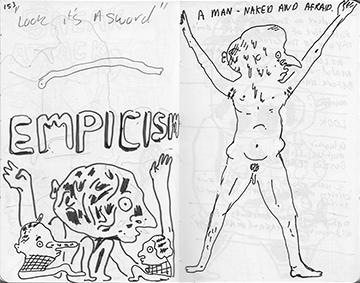 Look it's A sword"
EMPICISM
A MAN - NAKED AND AFRAID.